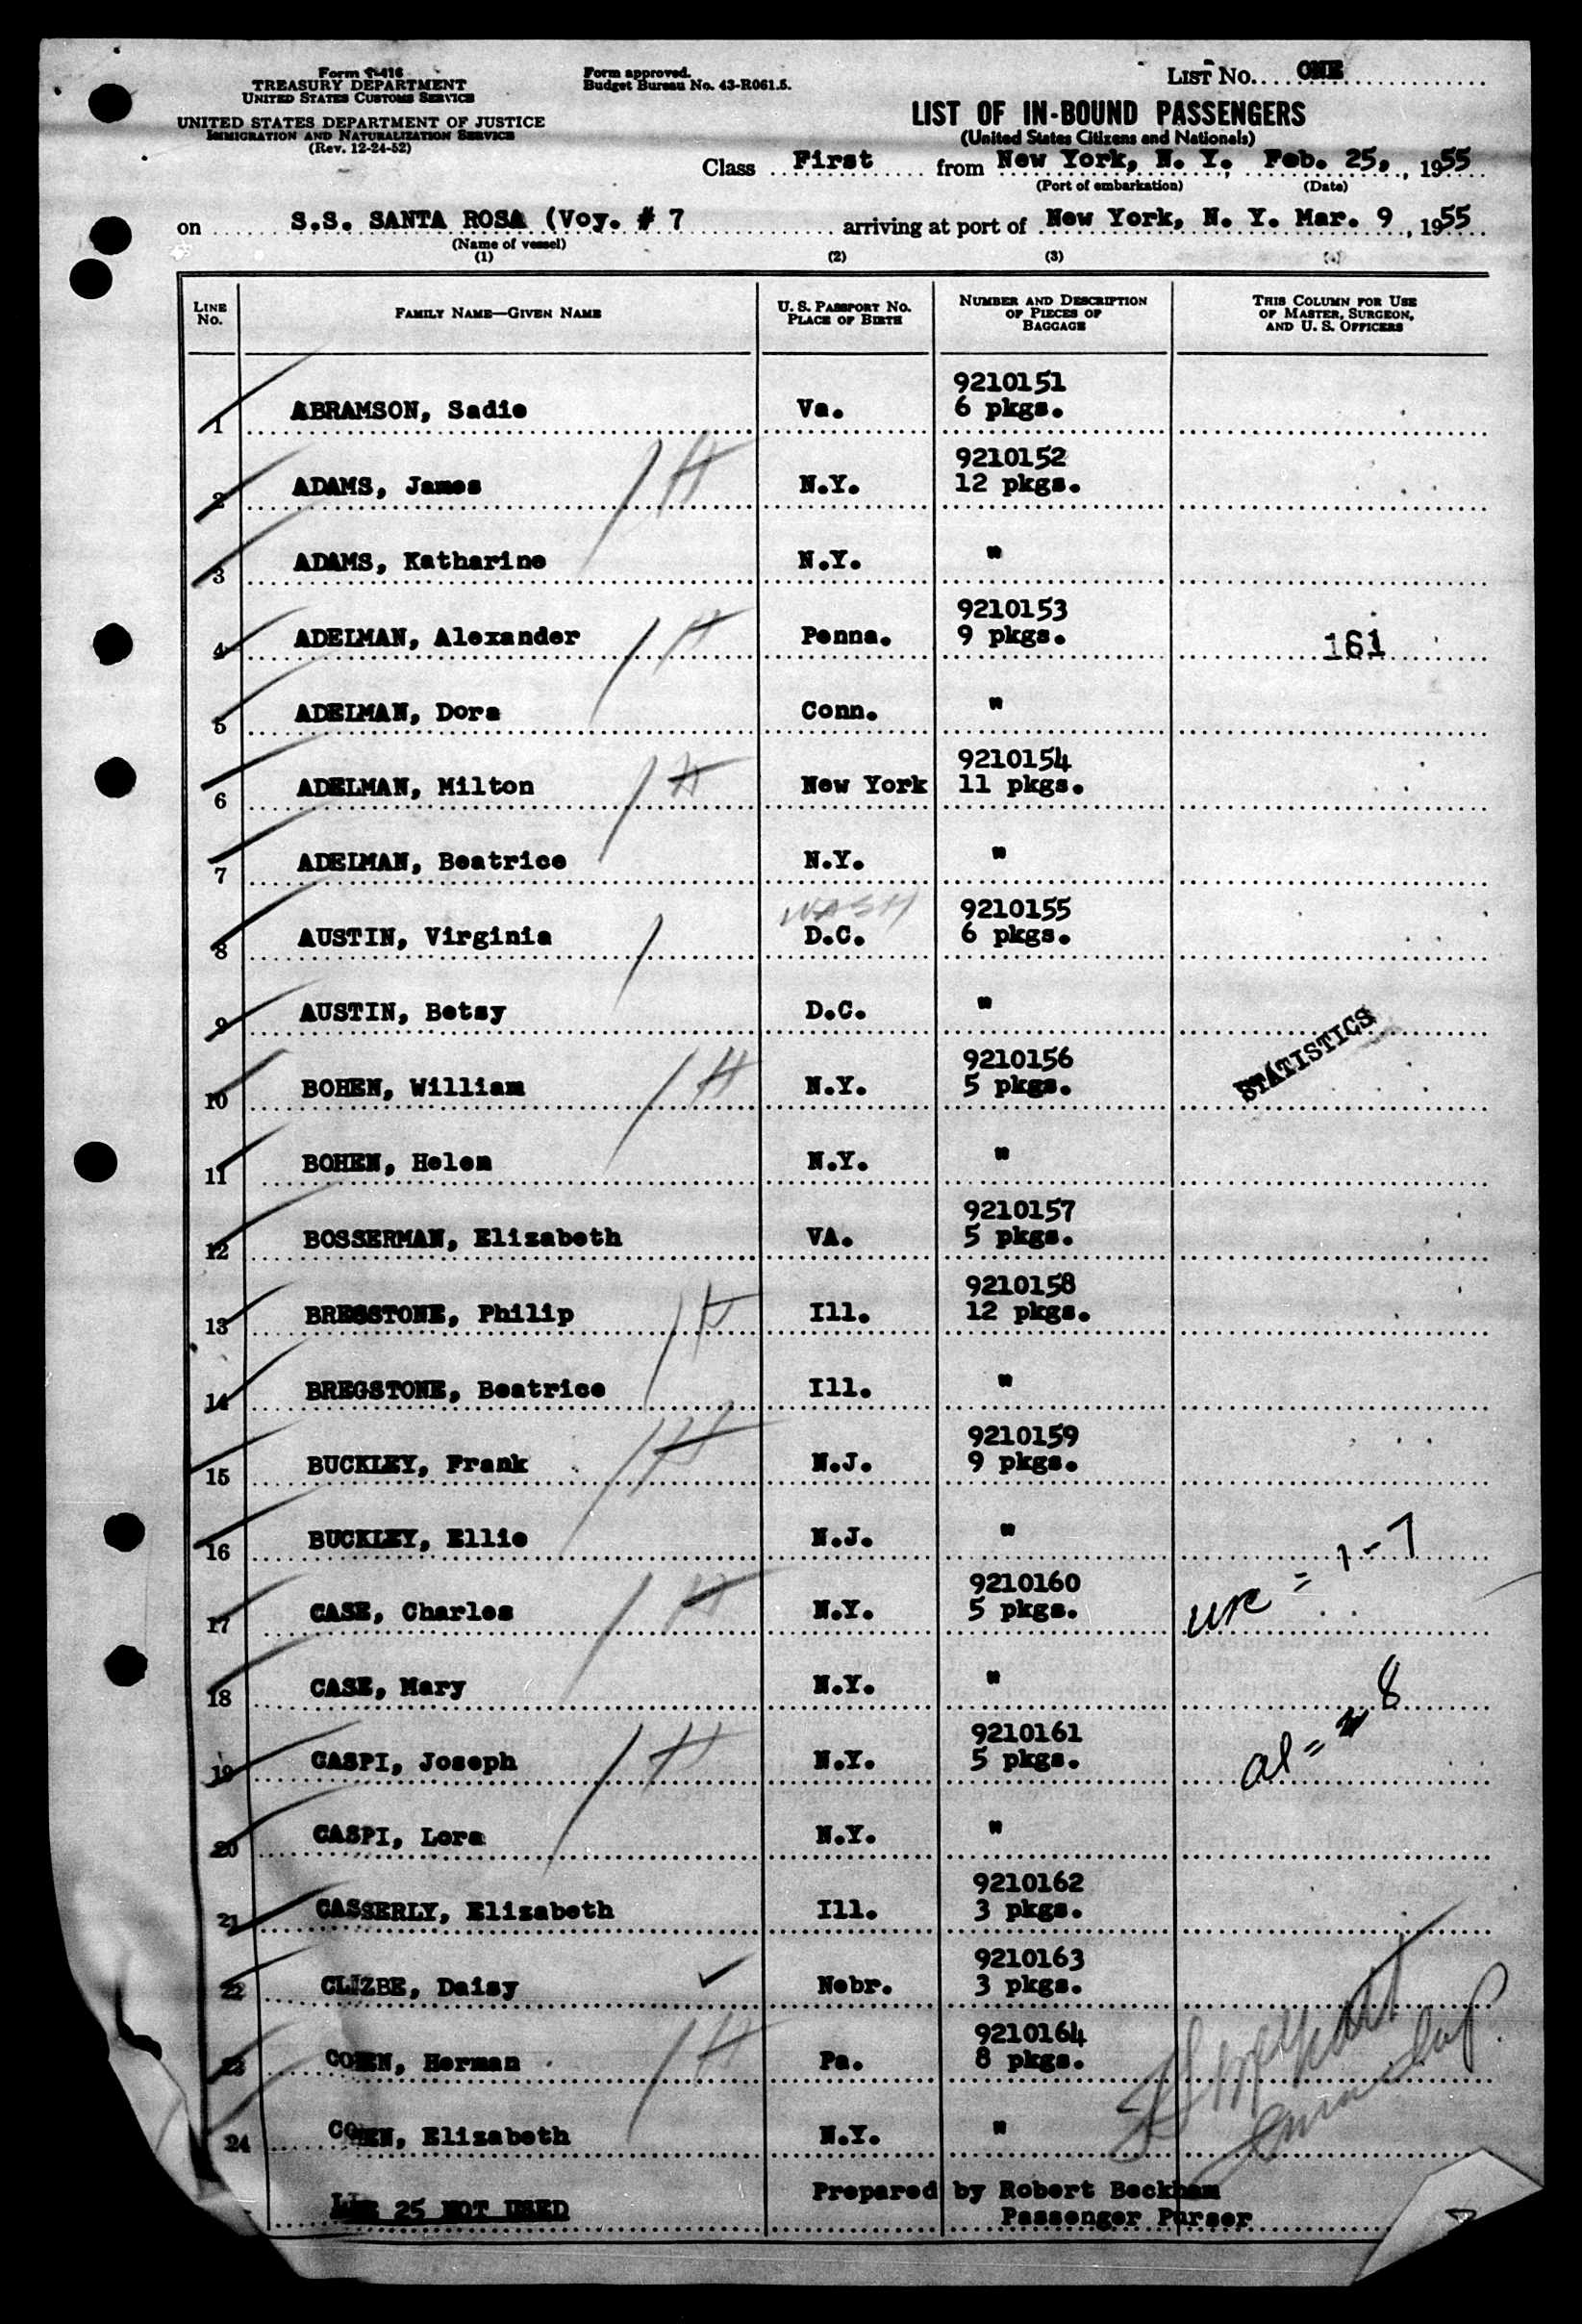 Form I-416
TREASURY DEPARTMENT
UNITED STATES CUSTOMS SERVICE
UNITED STATES DEPARTMENT OF JUSTICE
IMMIGRATION AND NATURALIZATION SERVICE
(Rev. 12-24-52)
Form approved.
Budget Bureau No. 43-R061.5.
LIST No. ONE
LIST OF IN-BOUND PASSENGERS
(United States Citizens and Nationals)
Class First from New York, N. Y., Feb. 25, , 1955
(Port of embarkation) (Date)
on S.S. SANTA ROSA (Voy. # 7 arriving at port of New York, N. Y. Mar. 9 , 1955
(Name of vessel)
(1) (2) (3) (4)
LINE No. FAMILY NAME—GIVEN NAME U. S. PASSPORT No. PLACE OF BIRTH NUMBER AND DESCRIPTION OF PIECES OF BAGGAGE THIS COLUMN FOR USE OF MASTER, SURGEON, AND U. S. OFFICERS
9210151
1 ABRAMSON, Sadie Va. 6 pkgs.
9210152
2 ADAMS, James N.Y. 12 pkgs.
3 ADAMS, Katharine N.Y. "
9210153
4 ADELMAN, Alexander Penna. 9 pkgs. 161
5 ADELMAN, Dora Conn. "
9210154
6 ADELMAN, Milton New York 11 pkgs.
7 ADELMAN, Beatrice N.Y. "
WASH 9210155
8 AUSTIN, Virginia D.C. 6 pkgs.
9 AUSTIN, Betsy D.C. "
STATISTICS
9210156
10 BOHEN, William N.Y. 5 pkgs.
11 BOHEN, Helen N.Y. "
9210157
12 BOSSERMAN, Elizabeth VA. 5 pkgs.
9210158
13 BREGSTONE, Philip Ill. 12 pkgs.
14 BREGSTONE, Beatrice Ill. "
9210159
15 BUCKLEY, Frank N.J. 9 pkgs.
16 BUCKLEY, Ellie N.J. "
9210160
17 CASE, Charles N.Y. 5 pkgs. usc = 1-7
18 CASE, Mary N.Y. "
9210161
19 CASPI, Joseph N.Y. 5 pkgs. al = 8
20 CASPI, Lora N.Y. "
9210162
21 CASSERLY, Elizabeth Ill. 3 pkgs.
9210163
22 CLIZBE, Daisy Nebr. 3 pkgs.
9210164
23 COHEN, Herman Pa. 8 pkgs.
24 COHEN, Elizabeth N.Y. "
LINE 25 NOT USED
Prepared by Robert Beckham
Passenger Purser